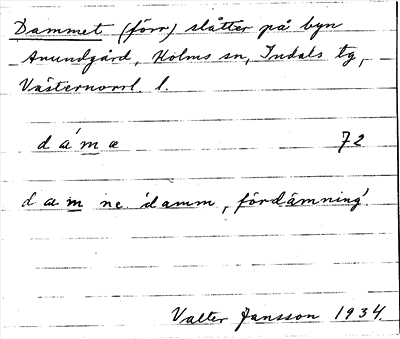 Dammet (förr) slåtter på byn
Anundgård, Holms sn, Indals tg,
Västernorrl. l.
dámæ 72
dæm ne. 'damm, fördämning'.
Valter Jansson 1934.